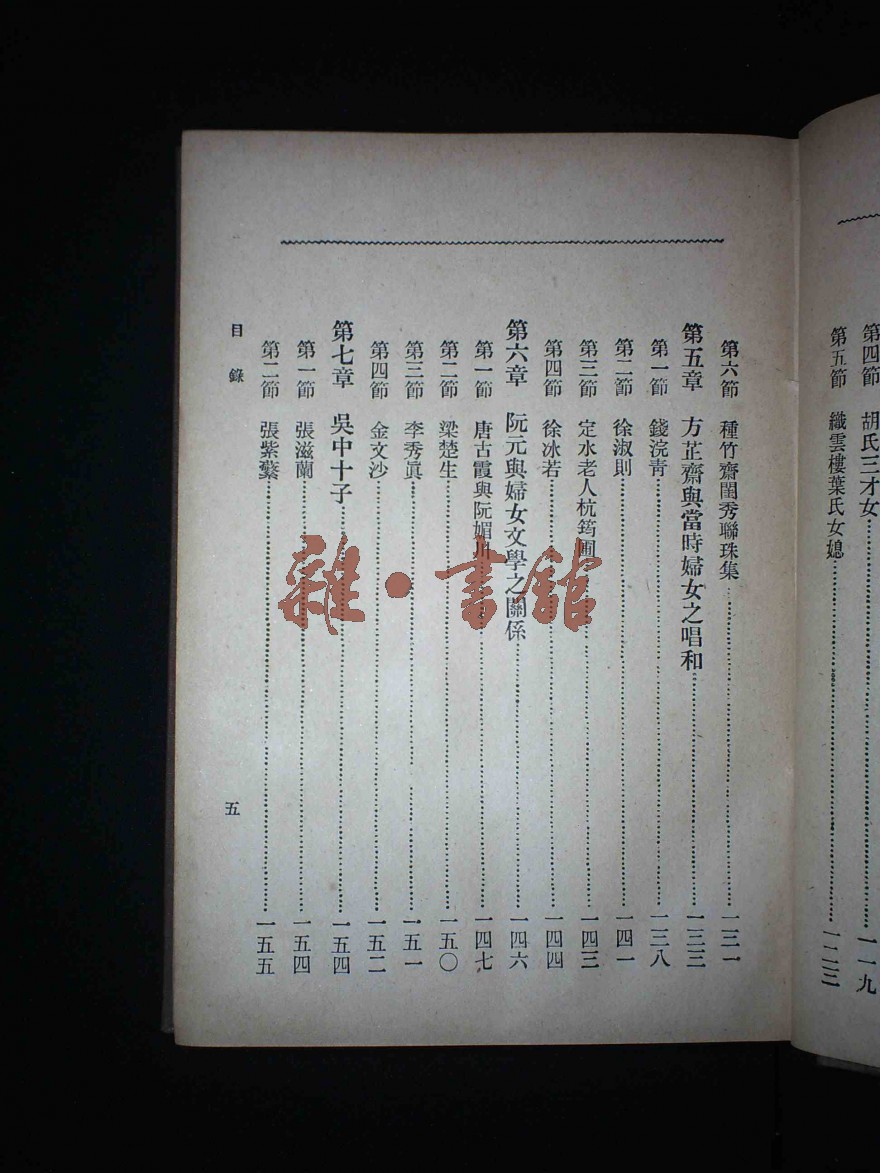 第四節　胡氏三才女…………一一九
第五節　織雲樓葉氏女媳…………一二三
第六節　種竹齋閨秀聯珠集…………一三一
第五章　方芷齋與當時婦女之唱和…………一三三
第一節　錢浣青…………一三八
第二節　徐淑則…………一四一
第三節　定水老人杭筠圃…………一四三
第四節　徐冰若…………一四四
第六章　阮元與婦女文學之關係…………一四六
第一節　唐古霞與阮媚川…………一四七
第二節　梁楚生…………一五〇
第三節　李秀眞…………一五一
第四節　金文沙…………一五二
第七章　吳中十子…………一五四
第一節　張滋蘭…………一五四
第二節　張紫蘩…………一五五
目錄
五
雜·書館